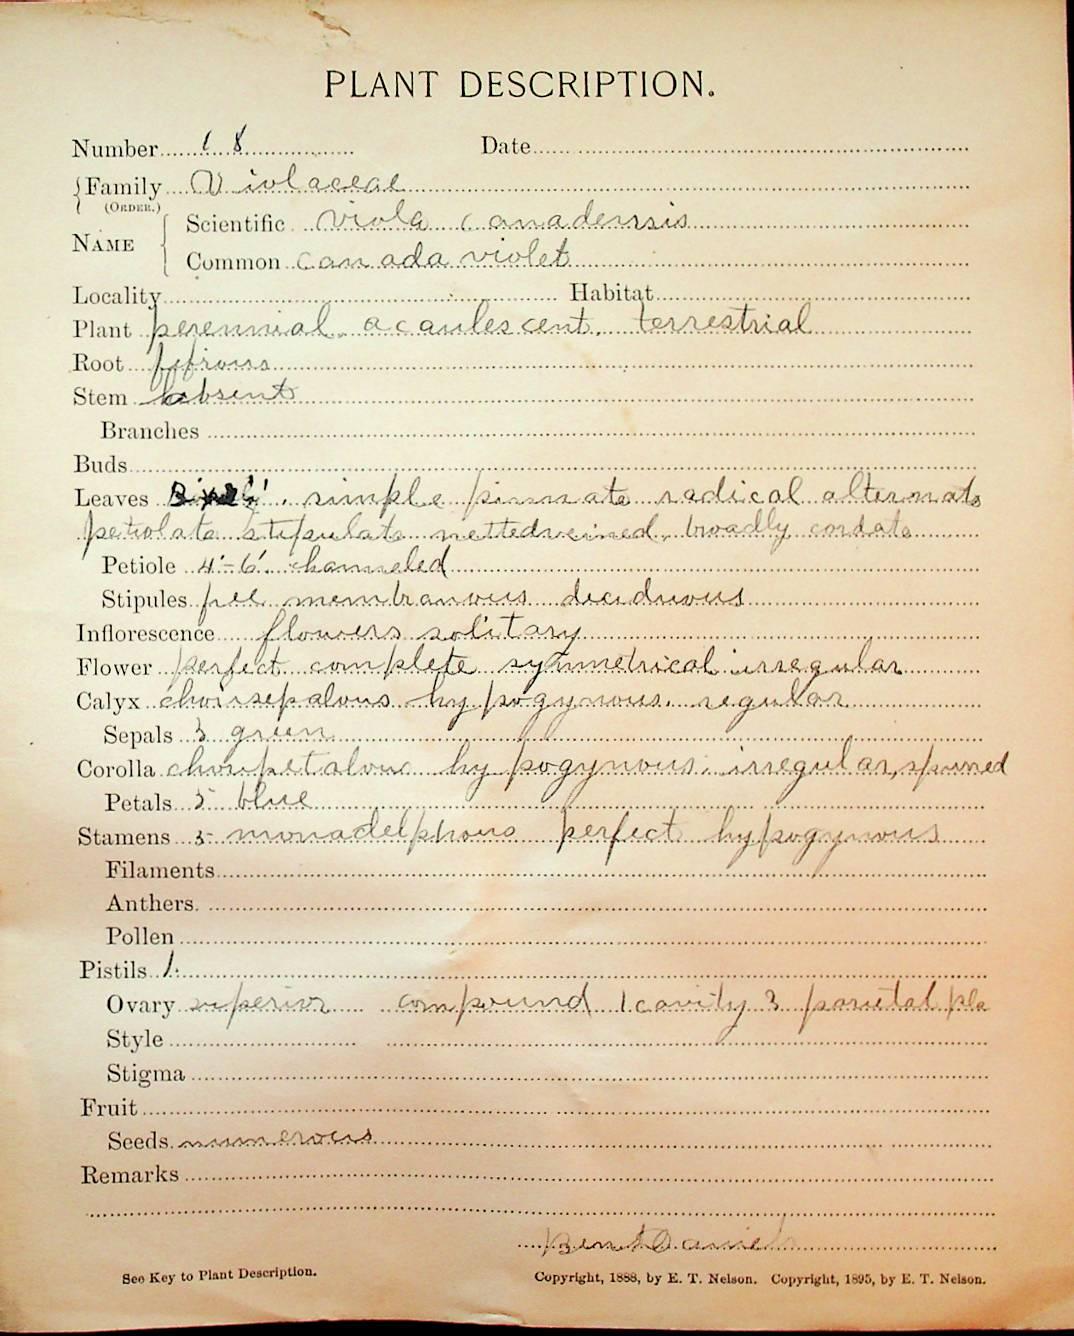 PLANT DESCRIPTION.
Number 18 Date
Family Violaceae
(ORDER.)
Scientific Viola canadensis
NAME
Common Canada violet
Locality Habitat
Plant perennial. acaulescent. terrestrial
Root fifrous
Stem absent
Branches
Buds
Leaves simple pinnate radical alternate
petiolate stipulate nettedveined. broadly cordate
Petiole 4'-6'. channeled
Stipules free membranous deciduous
Inflorescence flowers solitary
Flower perfect complete symmetrical irregular
Calyx chorisepalous hypogynous. regular
Sepals green
Corolla choripetalous hypogynous. irregular, spurred
Petals 5 blue
Stamens 5 monadelphous perfect hypogynous
Filaments
Anthers.
Pollen
Pistils 1.
Ovary superior compound 1 cavity 3 parietal pla
Style
Stigma
Fruit
Seeds numerous
Remarks
See Key to Plant Description. Copyright, 1888, by E. T. Nelson. Copyright, 1895, by E. T. Nelson.